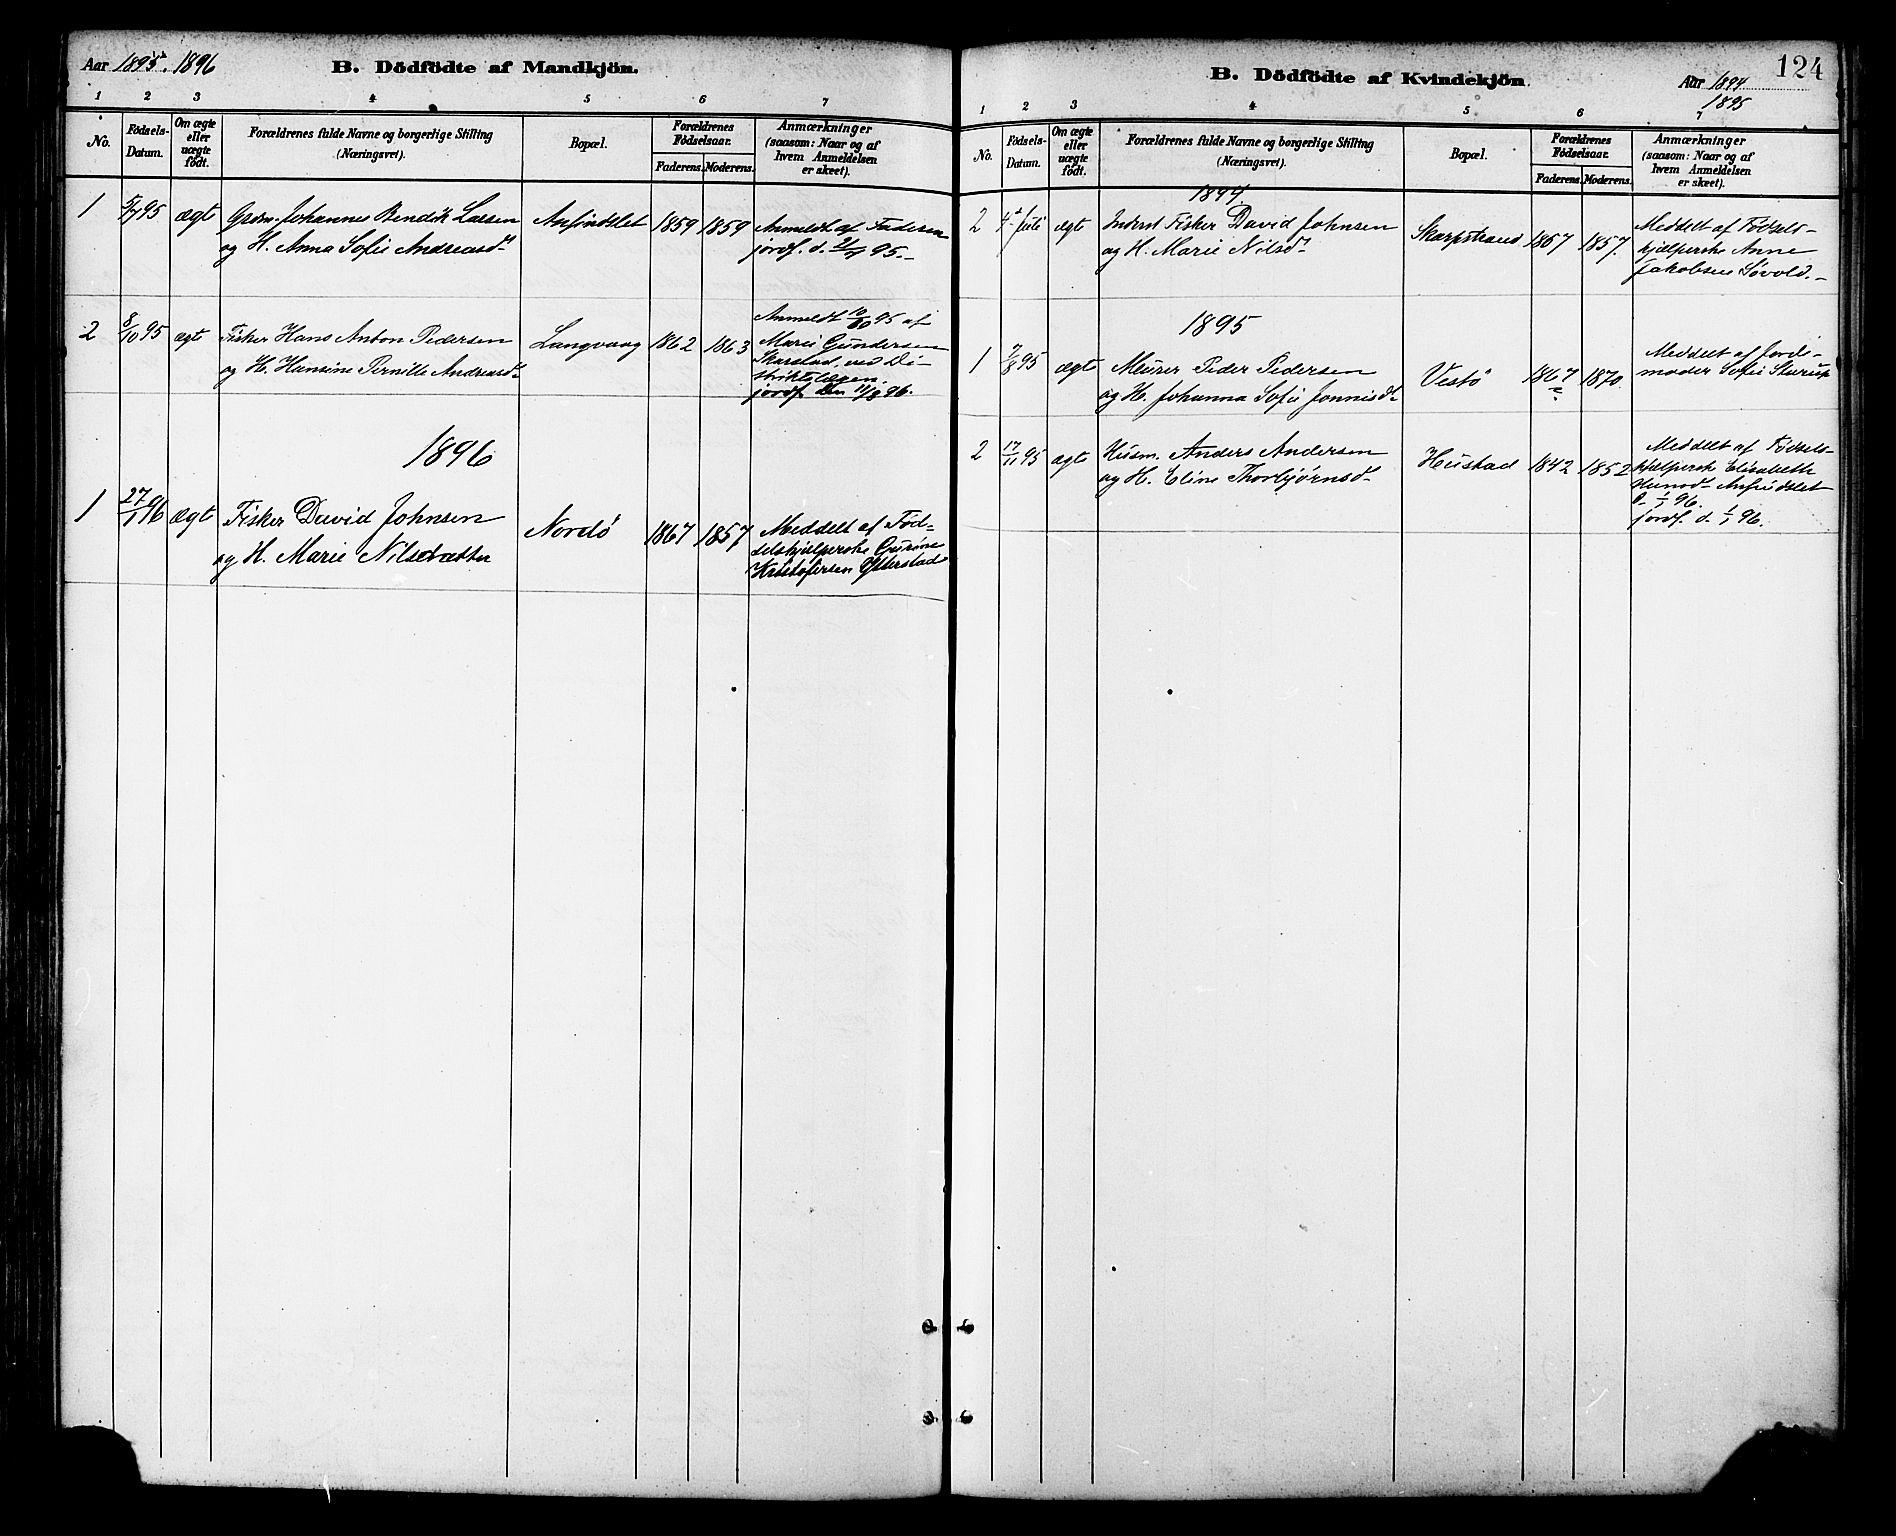 Aar 1895. 1896
B. Dödfödte af Mandkjön.
1 2 3 4 5 6 7
No.
Födsels-
Datum.
Om ægte
eller
uægte
födt.
Forældrenes fulde Navne og borgerlige Stilling
(Næringsvei).
Bopæl.
Forældrenes
Födselsaar.
Faderens. Moderens.
Anmærkninger
(saasom: Naar og af
hvem Anmeldelsen
er skeet).
1 5/7 95 ægt Grdm. Johannes Bendik Larsen Anfindslet 1859 1859 Anmeldt af Faderen
og H. Anna Sofie Andreasd. jordf. d. 21/7 95.
2 8/10 95 ægt Fisker Hans Anton Pedersen Langvaag 1862 1863 Anmeldt 10/10 95 af
og H. Hansine Pernille Andreasd. Marie Gundersen
Skarstad, ved Di-
striktslægen.
jordf. den 11/8 96.
1896
1 27/1 96 ægt Fisker David Johnsen Nordö 1867 1857 Meddelt af Fød-
og H. Marie Nilsdatter selshjælperske Gurine
Kristofersen Ytterstad
124
B. Dödfödte af Kvindekjön.
Aar 1894
1895
1 2 3 4 5 6 7
No.
Födsels-
Datum.
Om ægte
eller
uægte
födt.
Forældrenes fulde Navne og borgerlige Stilling
(Næringsvei).
Bopæl.
Forældrenes
Födselsaar.
Faderens. Moderens.
Anmærkninger
(saasom: Naar og af
hvem Anmeldelsen
er skeet).
1894.
2 4de Juli ægt Inderst Fisker David Johnsen Skarpstrand 1867 1857. Meddelt af Fødsels-
og H. Marie Nilsd. hjælperske Anne
Jakobsen Løvold.
1895
1 7/8 95 ægt Murer Peder Pedersen Vestö 1867 1870 Meddelt af Jorde-
og H. Johanna Sofie Jonnisd. moder Sofie Sturup
2 17/11 95 ægt Husm. Anders Andersen Hustad 1842 1852 Meddelt af Fødsels-
og H. Eline Thorbjørnsd. hjælpersk Elisabeth
Anfindslet
d. 1/1 96.
jordf. d. 1/1 96.